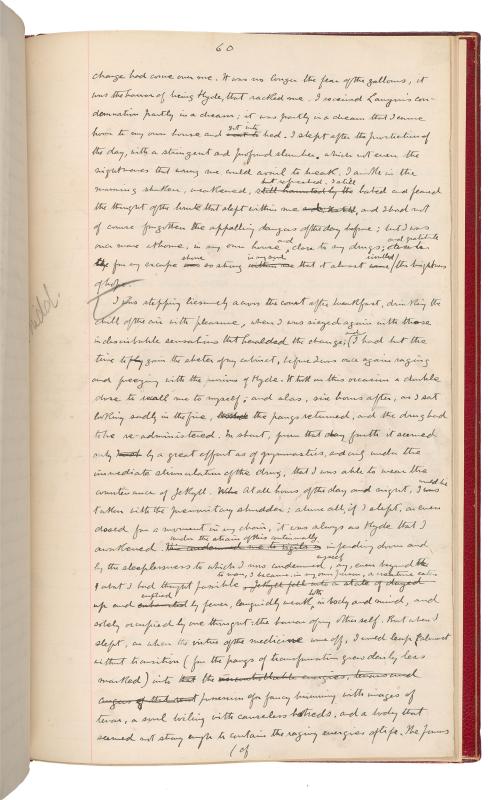 60
change had come over me. It was no longer the fear of the gallows, it
was the horror of being Hyde, that racked me. I received Lanyon's con-
demnation partly in a dream; it was partly in a dream that I came
home to my own house and
got into
bed. I slept after the prostration of
the day, with a stringent and profound slumber which not even the
nightmares that wrung me could avail to break. I awoke in the
but refreshed. I still
morning shaken, weakened, still haunted by the hated and feared
the thought of the brute that slept within me and I had not
of course forgotten the appalling dangers of the day before; but I was
once more at home, in my own house and close to my drugs; and gratitude
for my escape shone so strong in my soul that it almost rivalled the brightness
of hope.
I was stepping leisurely across the court after breakfast, drinking the
chill of the air with pleasure, when I was seized again with those
indescribable sensations that heralded the change; and I had but the
time to gain the shelter of my cabinet, before I was once again raging
and freezing with the passions of Hyde. It took on this occasion a double
dose to recall me to myself; and alas, six hours after, as I sat
looking sadly in the fire, the pangs returned, and the drug had
to be re-administered. In short, from that day forth it seemed
only by a great effort as of gymnastics, and only under the
immediate stimulation of the drug, that I was able to wear the
countenance of Jekyll. At all hours of the day and night, I would be
taken with the premonitory shudder; above all, if I slept, or even
dozed for a moment in my chair, it was always as Hyde that I
awakened. under the strain of this continually
impending doom and
by the sleeplessness to which I now condemned myself, ay, even beyond
what I had thought possible to man, I became, in my own person, a creature eaten
up and emptied by fever, languidly weak, both in body and mind, and
solely occupied by one thought: the horror of my other self. But when I
slept, or when the virtue of the medicine wore off, I would leap almost
without transition (for the pangs of transformation grew daily less
marked) into the
possession of a fancy brimming with images of
terror, a soul boiling with causeless hatreds, and a body that
seemed not strong enough to contain the raging energies of life. The powers
(of